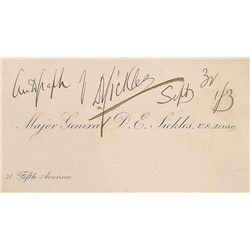 Autograph of D Sickles
Sept 3d
1/3
Major General D. E. Sickles, U.S. Army
31 Fifth Avenue